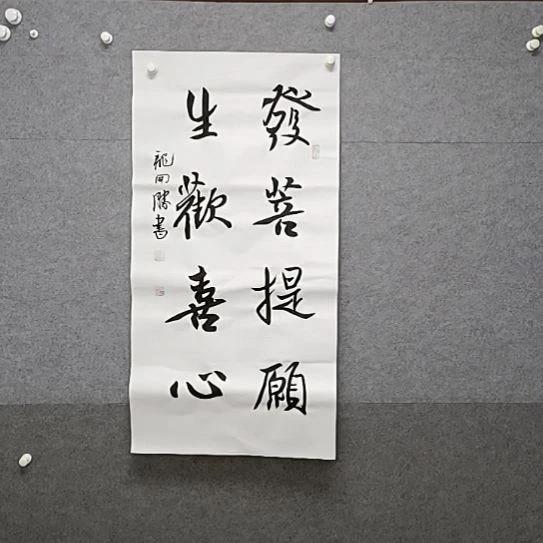 發菩提願
生歡喜心
龍四勝書